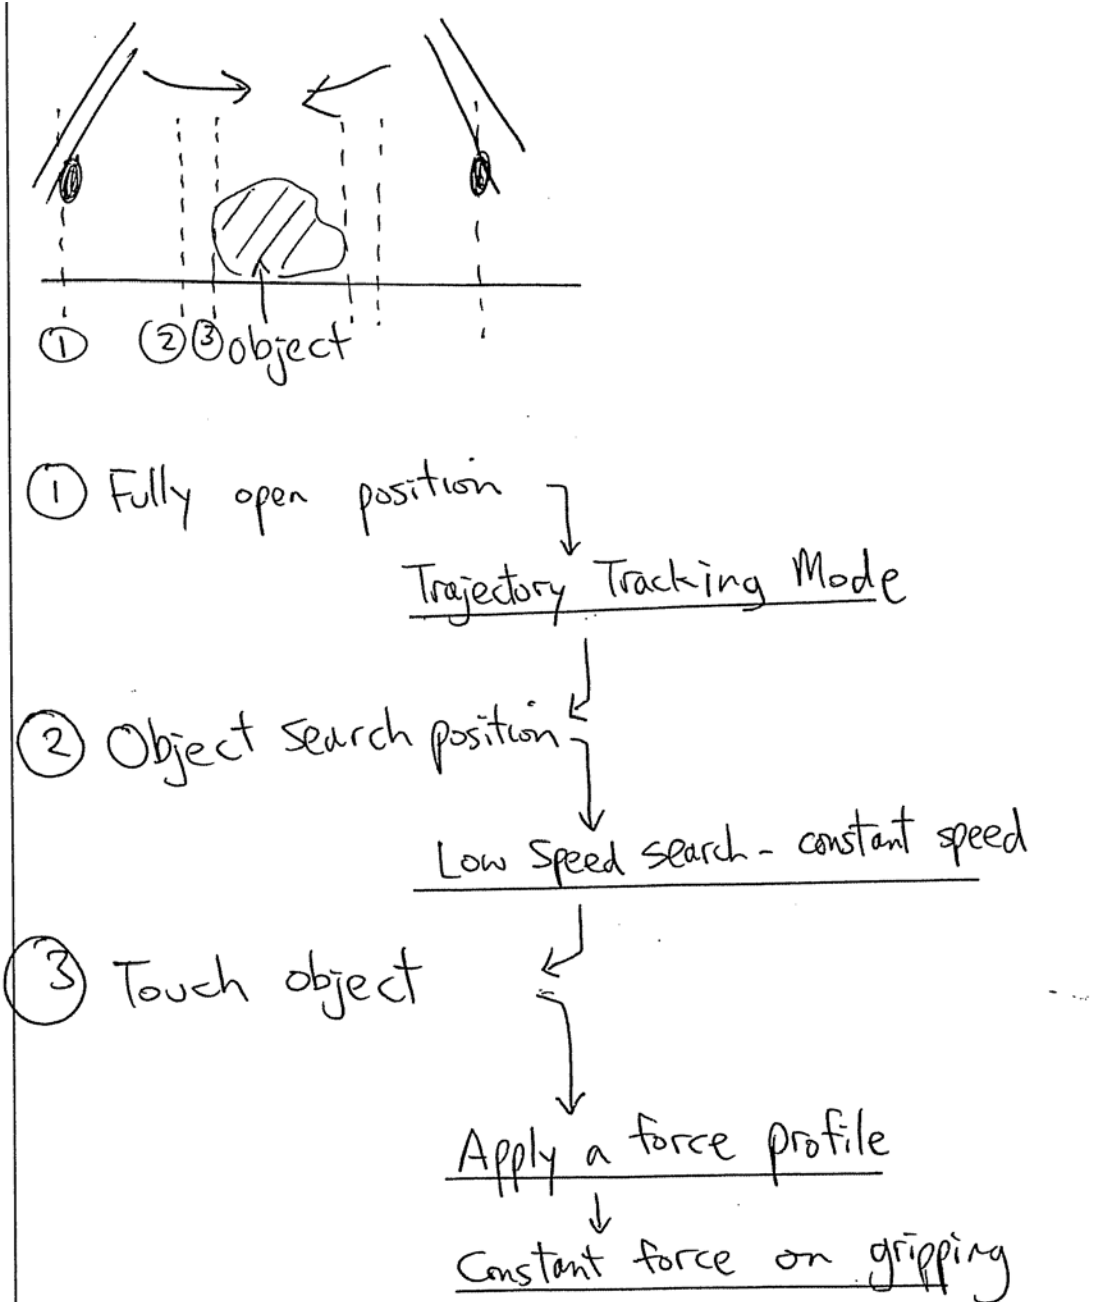 ① ② ③ object
① Fully open position
Trajectory Tracking Mode
② Object search position
Low Speed search - constant speed
③ Touch object
Apply a force profile
Constant force on gripping